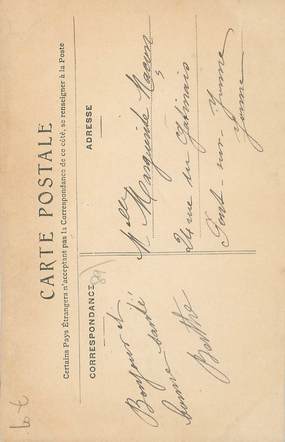 CARTE POSTALE
Certains Pays Étrangers n'acceptant pas la Correspondance de ce côté, se renseigner à la Poste
CORRESPONDANCE
ADRESSE
(89)
Bonjour et
bonne santé
Berthe
Melle Marguerite
24 rue du Gatinais
Pont-sur-Yonne
Yonne